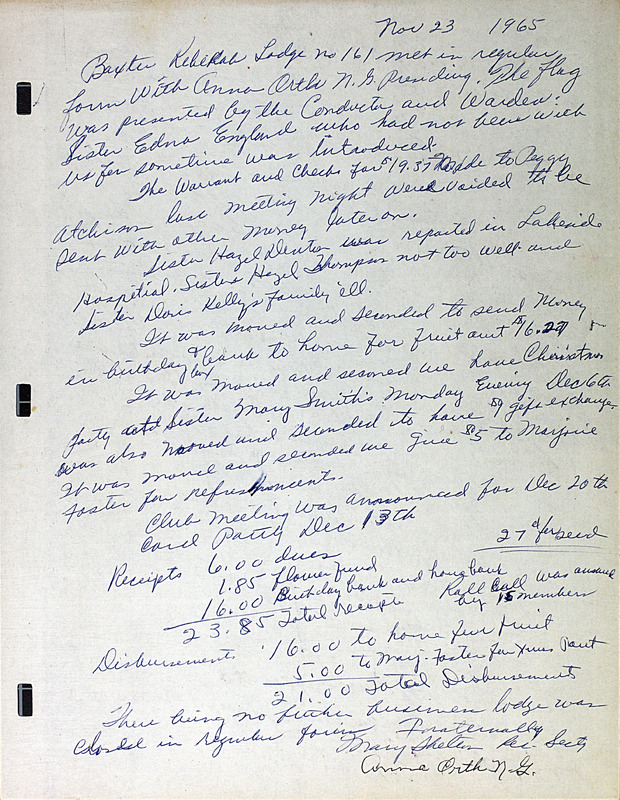 Nov 23 1965
Baxter Rebekah Lodge no 161 met in regular
form With Anna Orth N.G. Presiding. The flag
was presented by the Conductor and Warden.
Sister Edna England who had not been with
us for sometime was introduced.
The Warrant and Checks for $19.37 Made to Peggy
Atchison last meeting night were voided to be
sent with other money later on.
Sister Hazel Denton was reported in Lakeside
Hospital. Sister Hazel Thompson not too well and
Sister Doris Kelly's family ill.
It was moved and seconded to send Money
in birthday & bank to home for fruit amt $16.27
box
It was moved and seconed we have Christmas
Party at Sister Mary Smith's Monday Evening Dec 6th
was also moved and seconded to have gift exchange
It was moved and seconded we give $5 to Marjorie
Foster for refreshments.
Club Meeting was announced for Dec 20th
Card Party Dec 13th
27
Receipts 6.00 dues
1.85 flower fund
16.00 Birthday bank and bank
23.85 Total receipts
Roll Call was
by 15 members
Disbursements 16.00 to home for fruit
5.00 to Marj. Foster for
21.00 Total Disbursements
There being no further business lodge was
closed in regular form. Fraternally
Mary Shelton Rec. Secty
Anna Orth N.G.